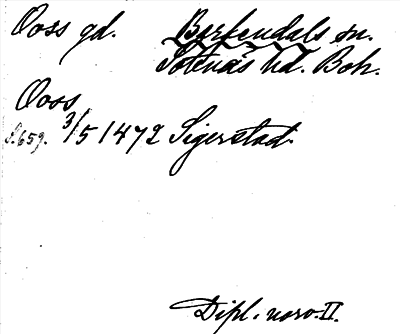 Ooss gd. Bärfendals sn.
Sotenäs hd. Boh.
Ooss
S. 659. 3/5 1472 Sigerstad
Dipl. norv. II.